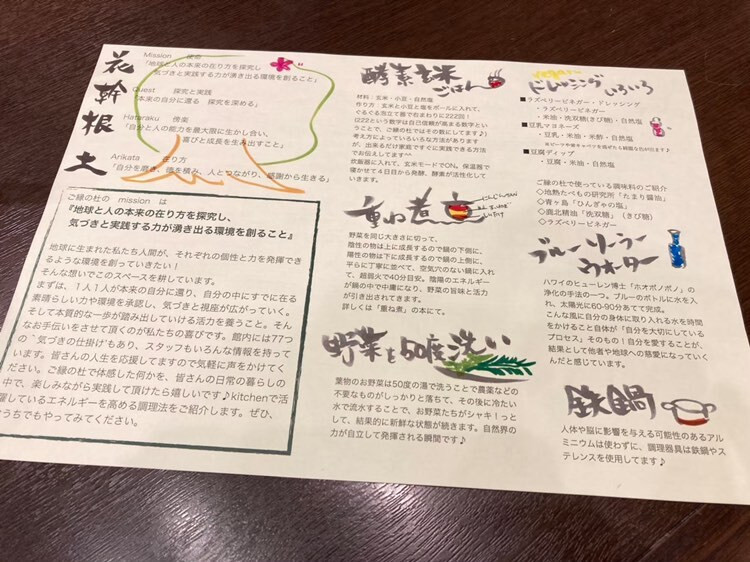 花
幹
根
土
Mission 使命
「地球と人の本来の在り方を探究し、
気づきと実践する力が湧き出る環境を創ること」
Quest 探究と実践
「本来の自分に還る 探究を深める」
Hataraku 傍楽
「自分と人の能力を最大限に生かし合い、
喜びと成長を生み出すこと」
Arikata 在り方
「自分を磨き、徳を積み、人とつながり、感謝から生きる」
ご縁の杜の mission は
『地球と人の本来の在り方を探究し、
気づきと実践する力が湧き出る環境を創ること』
地球に生まれた私たち人間が、それぞれの個性と力を発揮でき
るような環境を創っていきたい！
そんな想いでこのスペースを耕しています。
まずは、1人1人が本来の自分に還り、自分の中にすでに在る
素晴らしい力や環境を承認し、気づきと視座が広がっていく。
そして本質的な一歩が踏み出していける活力を養うこと。そん
なお手伝いをさせて頂くのが私たちの喜びです。館内には77つ
の“気づきの仕掛け”もあり、スタッフもいろんな情報を持って
います。皆さんの人生を応援してますので気軽に声をかけてく
ださい。ご縁の杜で体感した何かを、皆さんの日常の暮らしの
中で、楽しみながら実践して頂けたら嬉しいです♪kitchenで活
躍しているエネルギーを高める調理法をご紹介します。ぜひ、
おうちでもやってみてください。
酵素玄米
ごはん
材料：玄米・小豆・自然塩
作り方 玄米と小豆と塩をボールに入れて、
ぐるぐる泡立て器で右まわりに222回！
（222という数字は自己信頼が高まる数字とい
うことで、ご縁の杜ではその数にしてます♪）
考え方によっていろいろな方法がありま
すが、出来るだけ家庭ですぐに実践できる方法
でお伝えします^^
炊飯器に入れて、玄米モードでON。保温器で
寝かせて４日目から発酵、酵素が活性化して
いきます。
重ね煮
にんじんSAN
しいたけ
野菜を同じ大きさに切って、
陰性の物は上に成長するので鍋の下側に、
陽性の物は下に成長するので鍋の上側に、
平らに丁寧に並べて、空気穴のない鍋に入れ
て、超弱火で40分目安。陰陽のエネルギー
が鍋の中で中庸になり、野菜の旨味と活力
が引き出されてきます。
詳しくは「重ね煮」の本にて。
野菜を50度洗い
葉物のお野菜は50度の湯で洗うことで農薬などの
不要なものがしっかりと落ちて、その後に冷たい
水で流水することで、お野菜たちがシャキ！っと
して、結果的に新鮮な状態が続きます。自然界の
力が自立して発揮される瞬間です♪
ドレッシング
いろいろ
■ラズベリービネガー・ドレッシング
・ラズベリービネガー
・米油・洗双糖（きび糖）・自然塩
■豆乳マヨネーズ
・豆乳・米油・米酢・自然塩
■豆腐ディップ
・豆腐・米油・自然塩
ご縁の杜で使っている調味料のご紹介
◇地熱たべもの研究所「たまり醤油」
◇青ヶ島「ひんぎゃの塩」
◇鹿北精油「洗双糖」（きび糖）
◇ラズベリービネガー
ブルーソーラー
ウオーター
ハワイのヒューレン博士「ホオポノポノ」の
浄化の手法の一つ。ブルーのボトルに水を入
れ、太陽光に60-90分あてて完成。
こんな風に自分の身体に取り入れる水を時間
をかけること自体が「自分を大切にしている
プロセス」そのもの！自分を愛することが、
結果として他者や地球への慈愛になっていく
んだと感じています。
鉄鍋
人体や脳に影響を与える可能性のあるアル
ミニウムは使わずに、調理器具は鉄鍋やス
テンレスを使用してます♪